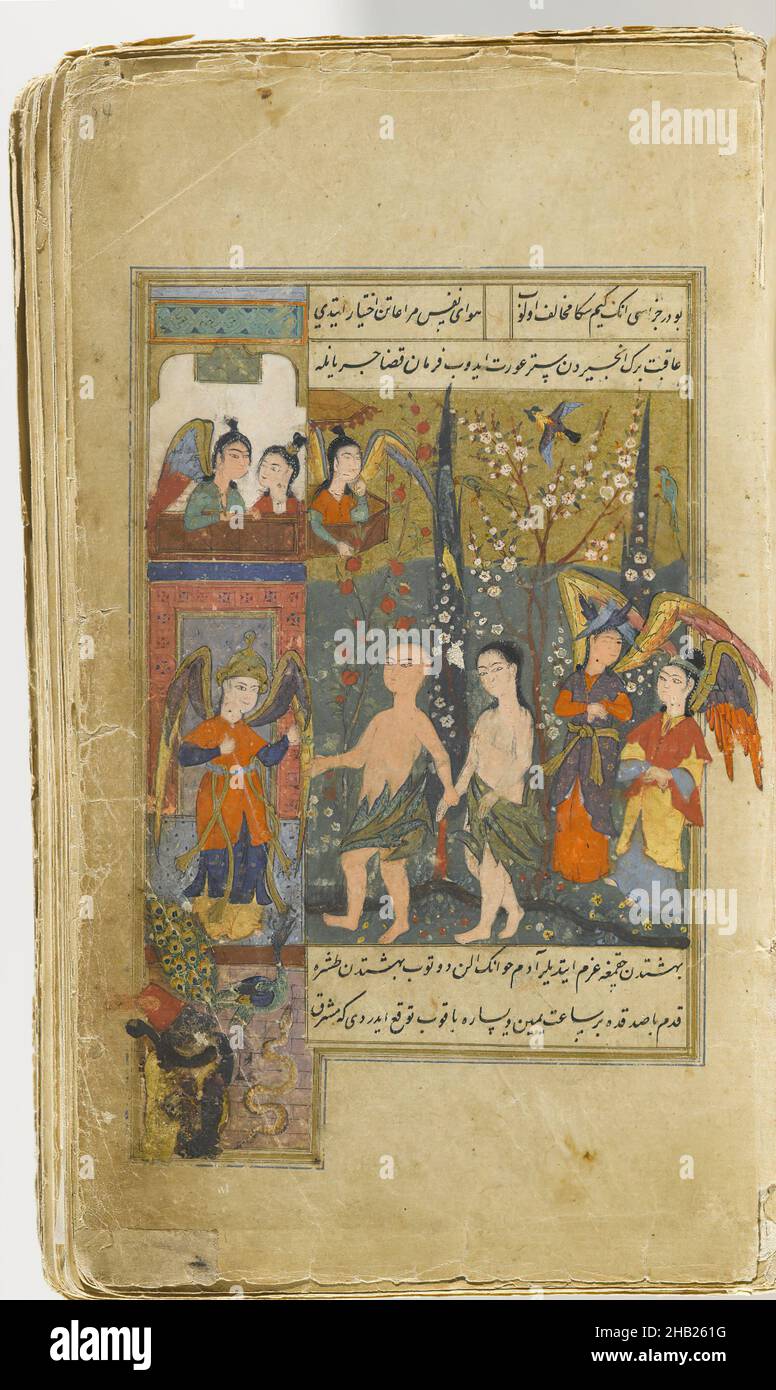 بودر جزاسی انک کیم سکا مخالف اولوب هوای نفس مراعاتن اختیار ایتدی
عاقبت برک انجیردن ستر عورت ایدوب فرمان قضا جریانله
بهشتدن چقمغه عزم ایتدیلر آدم حوانک الن دوتوب بهشتدن طشره
قدم باصدقده بر ساعت یمین و یساره باقوب توقع ایدردی که مقرب
alamy
Image ID: 2HB261G
www.alamy.com